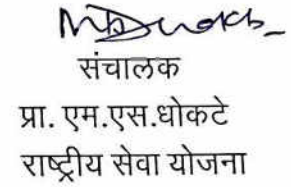 संचालक
प्रा. एम.एस.धोकटे
राष्ट्रीय सेवा योजना